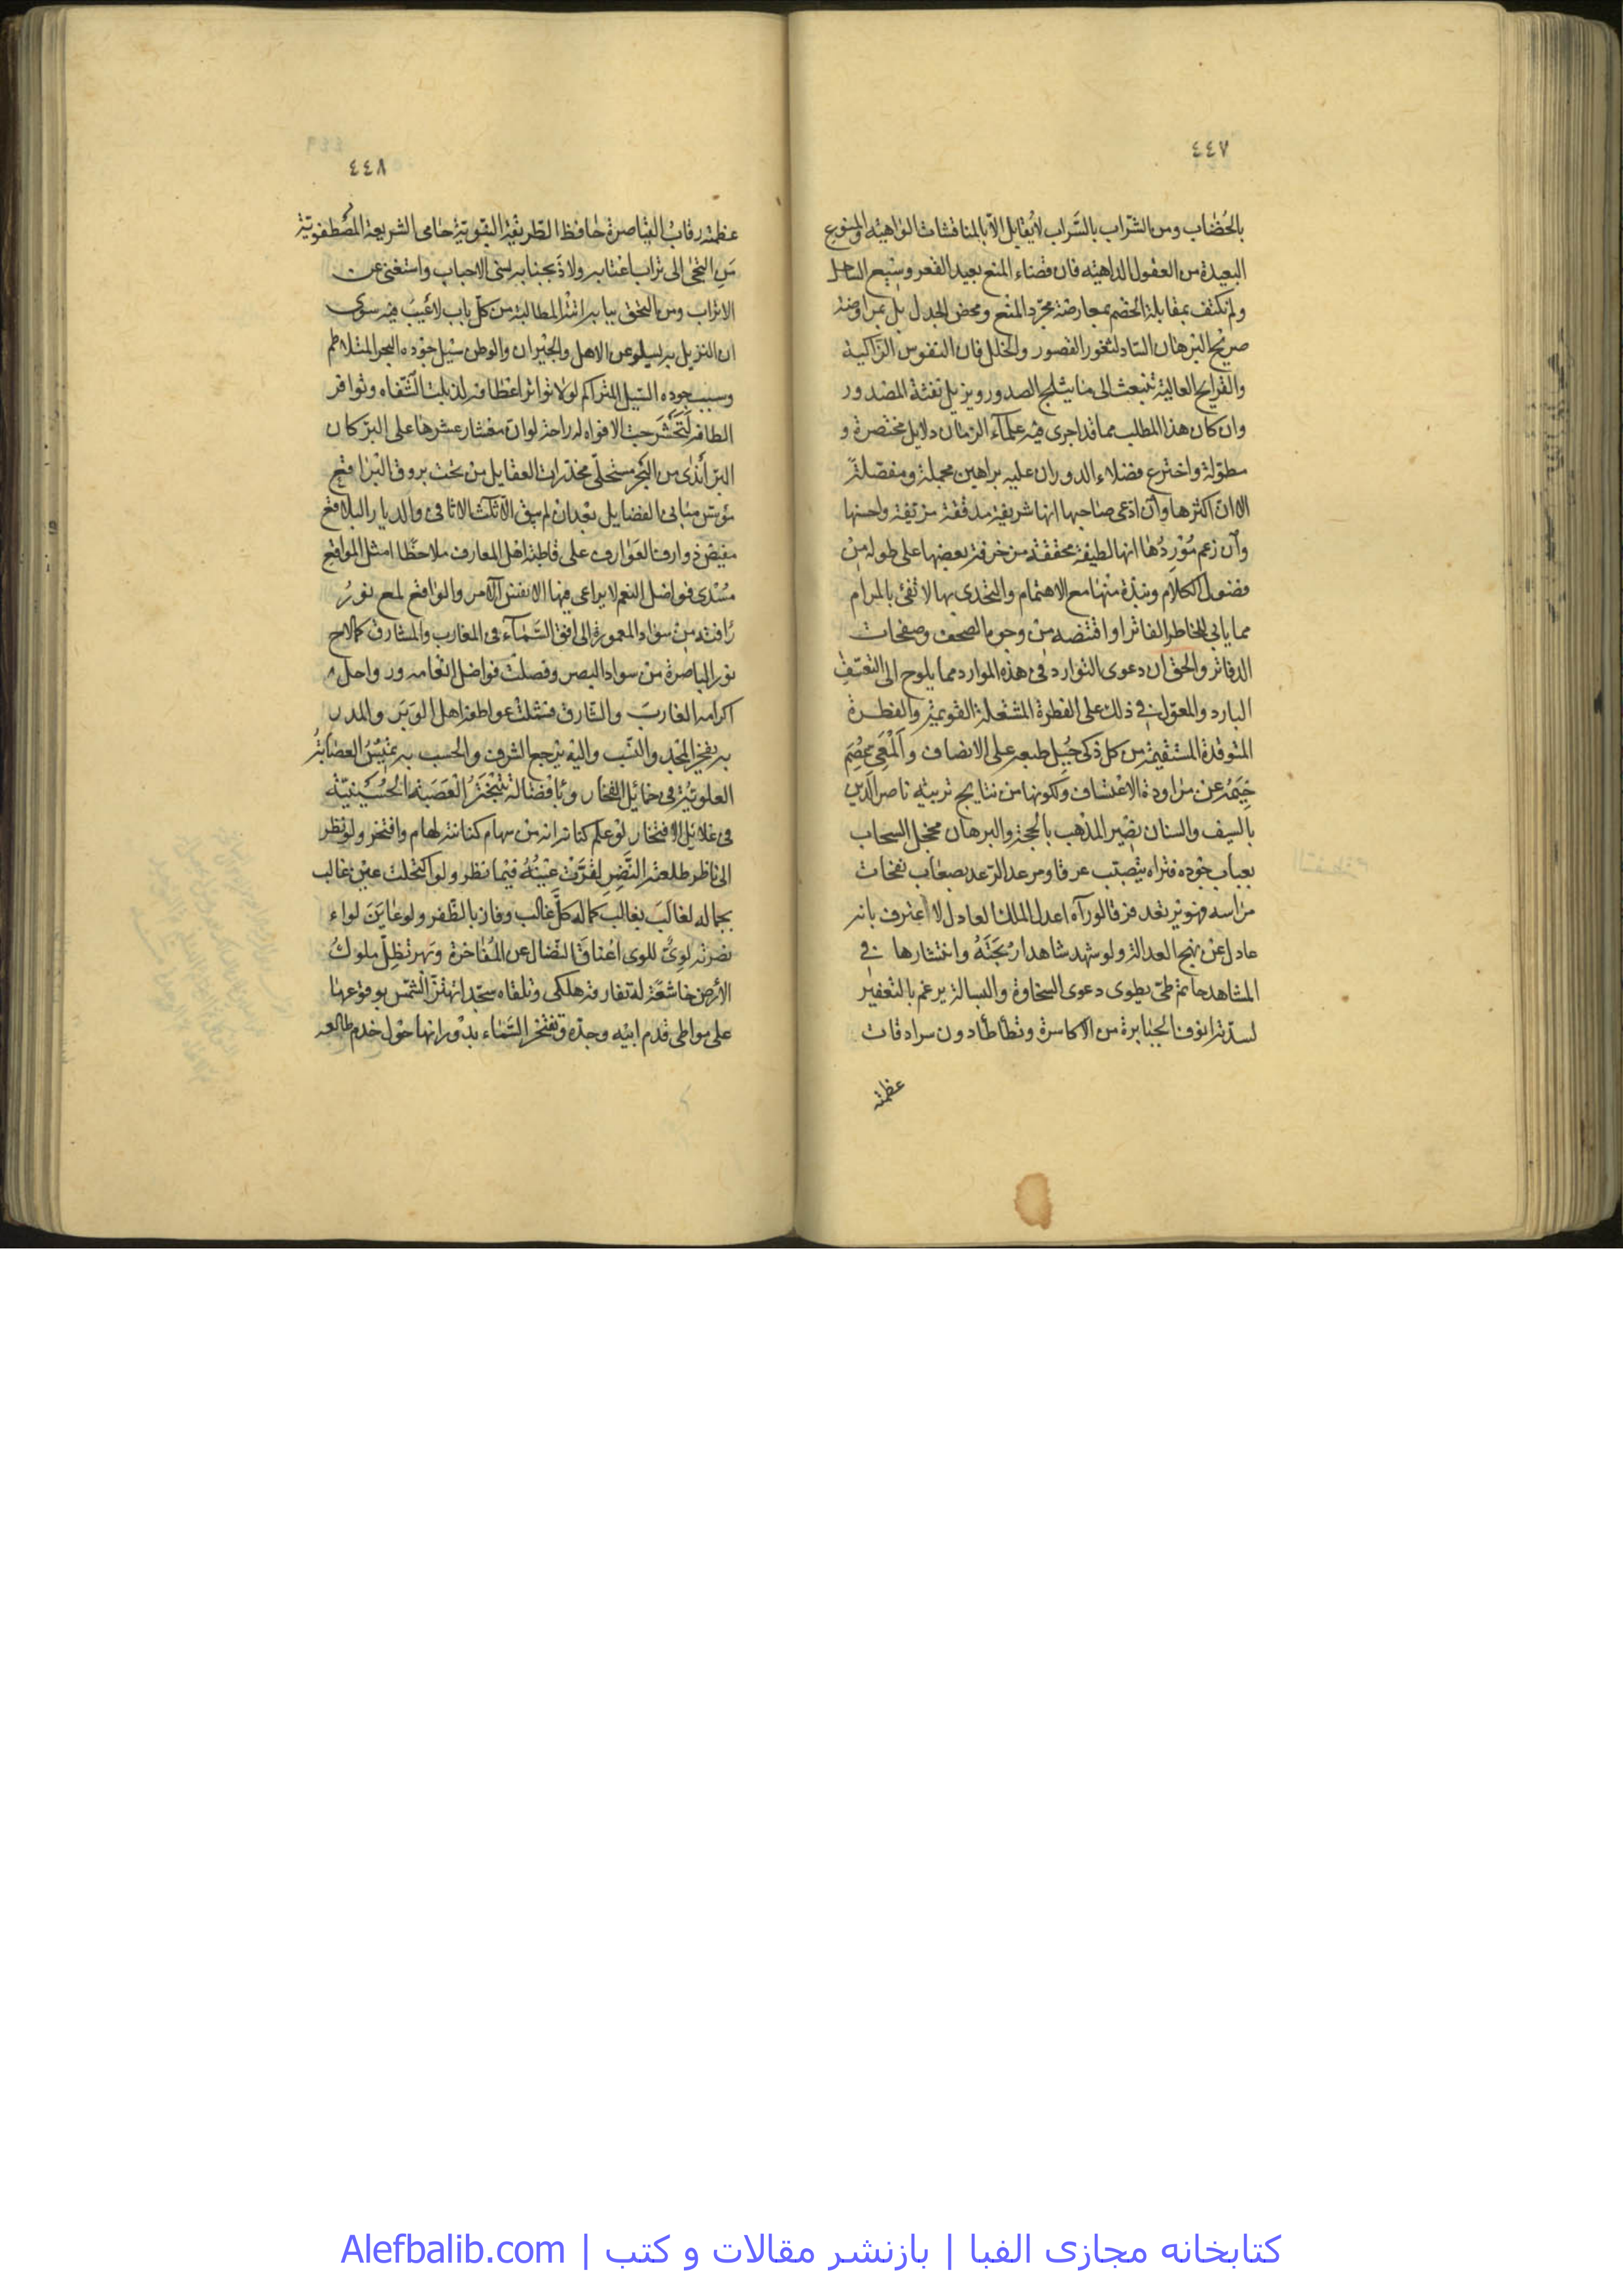 ٤٤٧
بالخضاب ومن الشراب بالسراب لا يقابل الا بالمناقشات الواهية والمنوع
البعيدة من العقول الداهية فان فضاء المنع بعيد القعر وسيع الساحل
ولم نكتف بمقابلة الخصم بمعارضة مجرد المنع ومحض الجدل بل بمراوضة
صريح البرهان الساد لثغور القصور والخلل فان النفوس الزاكية
والقرايح العالية تنبعث الى ما يثلج الصدور ويزيل نفثة المصدور
وان كان هذا المطلب مما قد اجرى فيه علماء الزمان دلايل مختصرة و
مطولة واخترع فضلاء الدوران عليه براهين مجملة ومفصلة
الا ان اكثرها وان ادعى صاحبها انها شريفة مدققة مزيفة واحسنها
وان زعم موردها انها لطيفة محققة مزخرفة بعضها على طوله من
فضول الكلام ونبذة منها مع الاهتمام والتحدى بها لا تفى بالمرام
مما يابى الخاطر الفاتر او اقتضبه من وجوه الصحف وصفحات
الدفاتر والحق ان دعوى التوارد فى هذه الموارد مما يلوح الى التعسف
البارد والمعول فى ذلك على الفطرة المشتعلة القويمة والفطرة
المتوقدة المستقيمة من كل ذكى جبل طبعه على الانصاف والمعى عصم
خيمه عن مراودة الاعتساف ولكونها من نتايج تربية ناصر الدين
بالسيف والسنان نصير المذهب بالحجة والبرهان مخجل السحاب
بعباب جوده فتراه يتصبب عرقا ومرعد الرعد بصعاب نفخات
مراسه فهو يرتعد فرقا لو رآه اعدل الملك العادل لاعترف بانه
عادل عن نهج العدالة ولو شهد شاهد ارتجته وانتشارها فى
المشاهد حاتم طى يطوى دعوى السخاوة والبسالة يرغم بالتعفير
لسدته انوف الجبابرة من الاكاسرة وتطأطأ دون سرادقات
عظمته
٤٤٨
عظمته رقاب القياصرة حافظ الطريقة التقوية حامى الشريعة المصطفوية
من التجى الى تراب اعتابه ولاذ بجنابه نسى الاحباب واستغنى عن
الاتراب ومن التحق ببابه اتته المطالب من كل باب لا عيب فيه سوى
ان النزيل به يسلو عن الاهل والجيران والوطن سيل جوده البحر المتلاطم
وسيب جوده السيل المتراكم لولا تواتر اعطافه لذبلت الشفاه وتوافر
الطافه لتحشرجت الافواه له راحة لو ان معشار عشرها على البر كان
البر اندى من البحر مستحلى مخدرات العقايل من تحت بروق البراقع
مؤسس مبانى الفضايل بعد ان لم يبق الا ثلاث الاثافى والديار البلاقع
مفيض ذوارف العوارف على قاطبة اهل المعارف ملاحظا امثل المواقع
مسدى فواضل النعم لا يراعى فيها الا نفس الامر والواقع لمع نور
رافته من سواد المعمورة الى افق السماء فى المغارب والمشارق كما لاح
نور الباصرة من سواد البصر وفصلت فواضل انعامه ورواحل
اكرامه الغارب والشارق فشملت عواطفه اهل الوبر والمدر
به يفخر المجد والنسب واليه يرجع الشرف والحسب به تميس العصابة
العلوية فى خمائل الفخار وبافضاله تتبختر العصبة الحسينية
فى غلايل الافتخار لو علم كنانة انه من سهام كنانته لهام وافتخر ولو نظر
الى ناظر طلعته النضر لقرت عينه فيما نظر ولو اكتحلت عين غالب
بجماله لغالب بغالب كماله كل غالب وفاز بالظفر ولو عاين لواء
نصرته لوى للوى اعناق النضال عن المفاخرة وبهر تظل ملوك
الارض خاشعة له تفارقه هلكى وتلقاه سجدا تهتز الشمس بوقوعها
على مواطى قدم ابيه وجده وتفتخر السماء بدورانها حول خدم طالعه
کتابخانه مجازی الفبا | بازنشر مقالات و کتب | Alefbalib.com